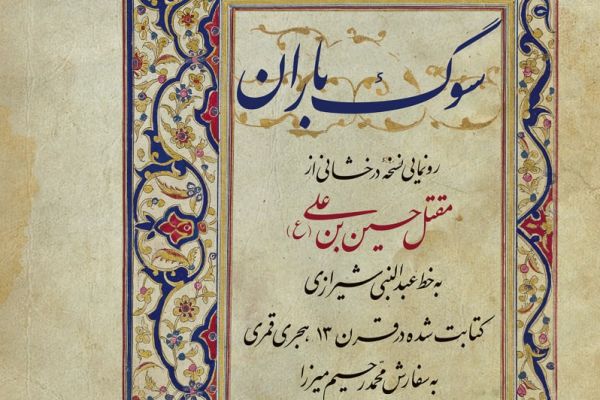 سوگ باران
رونمایی نسخهٔ درخشانی از
مقتل حسین بن علی (ع)
به خط عبدالنبی شیرازی
کتابت شده در قرن ۱۳ هجری قمری
به سفارش محمّد رحیم میرزا